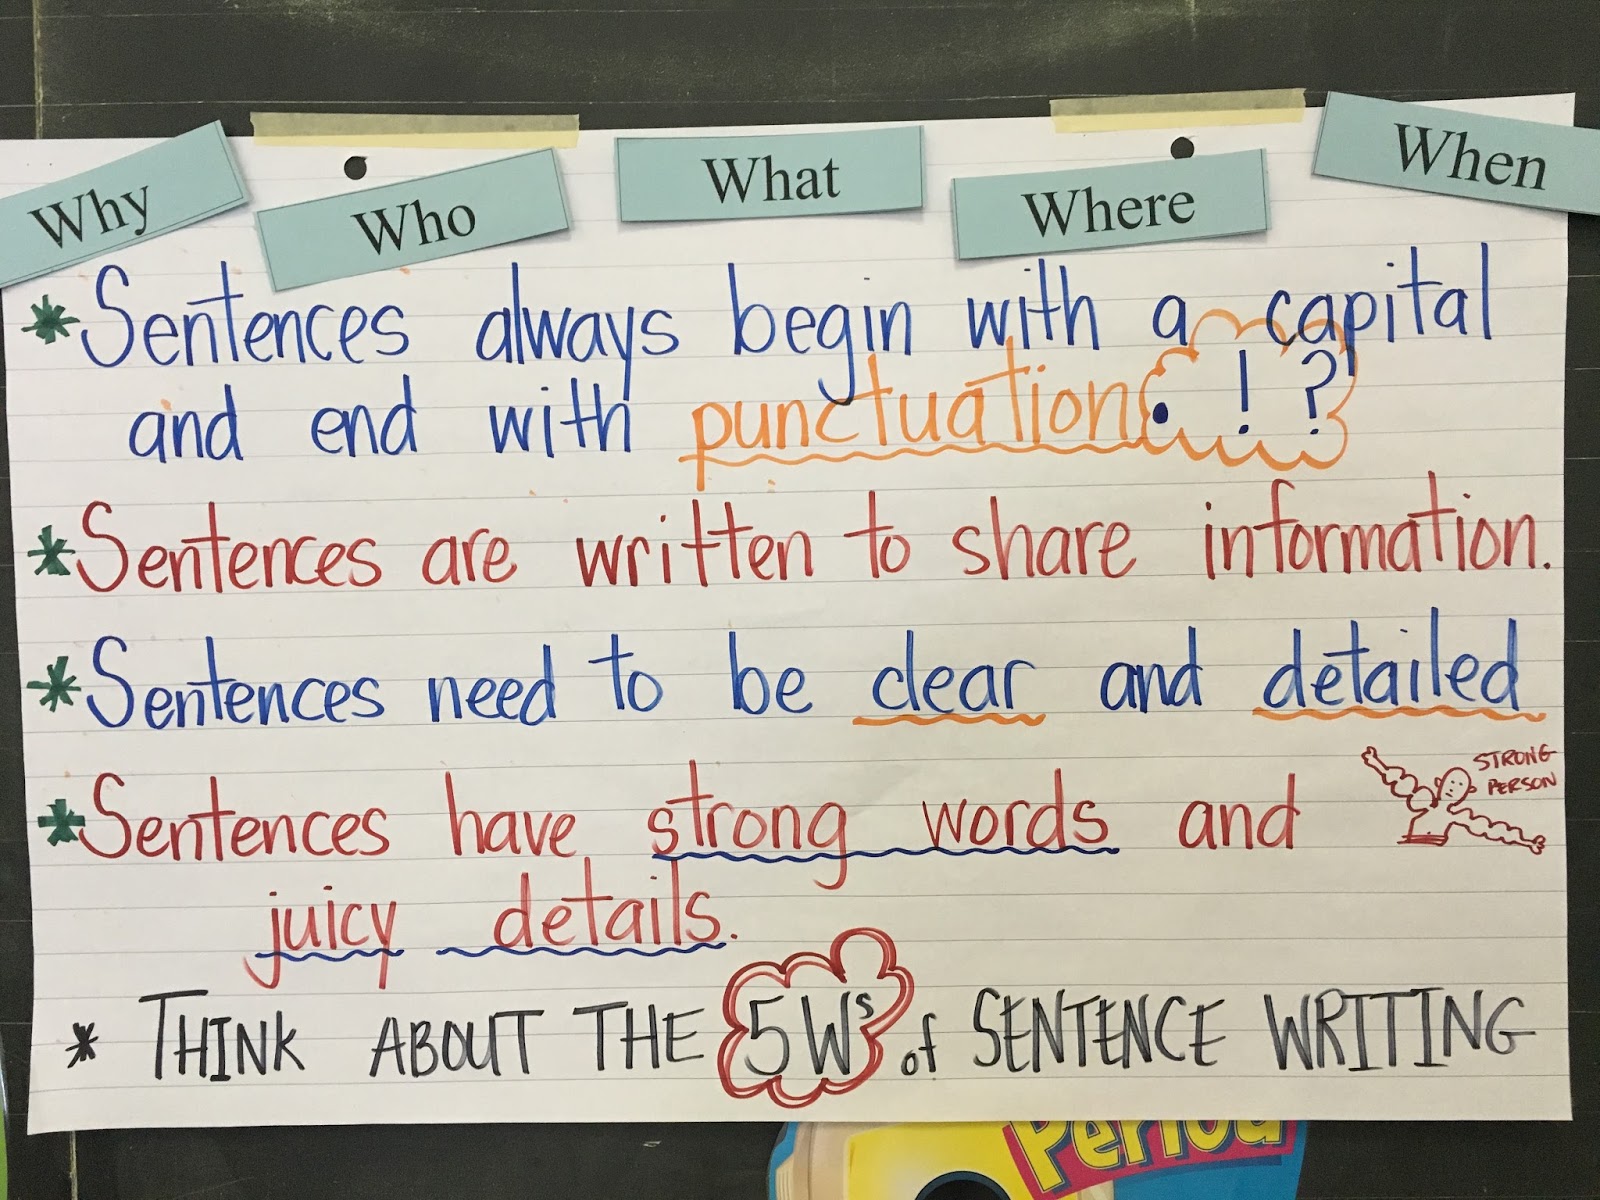 Why
Who
What
Where
When
* Sentences always begin with a capital
and end with punctuation. ! ?
* Sentences are written to share information.
* Sentences need to be clear and detailed
* Sentences have strong words and
STRONG
PERSON
juicy details.
* THINK ABOUT THE 5 Ws of SENTENCE WRITING
Period